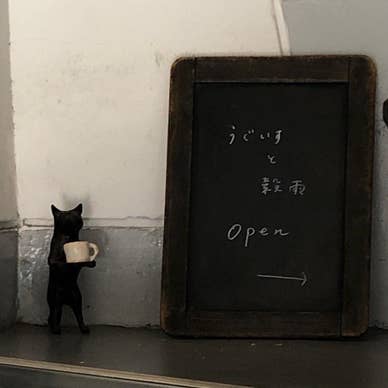 うぐいす
と
穀雨
Open
→